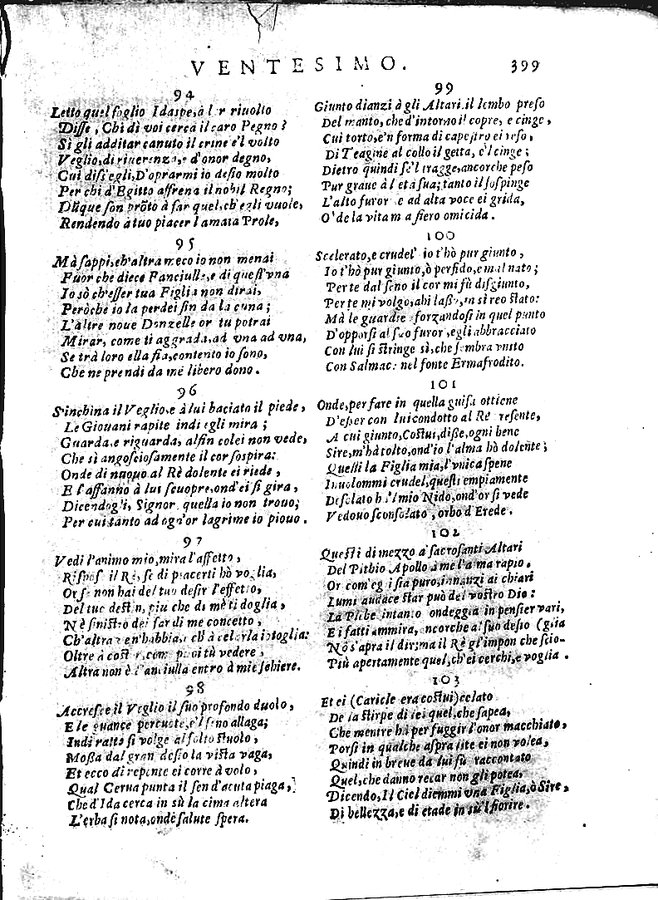 VENTESIMO. 399
94
Letto quel foglio Idaspe, à lor riuolto
Disse, Chi di voi cerca il caro Pegno?
Si gli additar canuto il crine e'l volto
Veglio, di riuerenza, e d'onor degno,
Cui diss'egli, D'oprarmi io desio molto
Per chi d'Egitto affrena il nobil Regno;
Dũque son prõto à far quel, ch'egli vuole,
Rendendo à tuo piacer l'amata Prole,
95
Mà sappi, ch'altra meco io non menai
Fuor che diece Fanciulle, e di quest'vna
Io sò ch'esser tua Figlia non dirai,
Peròche io la perdei fin da la cuna;
L'altre noue Donzelle or tu potrai
Mirar, come ti aggrada, ad vna ad vna,
Se trà loro ella fia, contento io sono,
Che ne prendi da me libero dono.
96
S'inchina il Veglio, e à lui baciato il piede,
Le Giouani rapite indi egli mira;
Guarda, e riguarda, alfin colei non vede,
Che sì angosciosamente il cor sospira:
Onde di nuouo al Rè dolente ei riede,
E l'affanno à lui scuopre, ond'ei si gira,
Dicendogli, Signor quella io non trouo;
Per cui tanto ad ogn'or lagrime io piouo.
97
Vedi l'animo mio, mira l'affetto,
Rispose il Rè, se di piacerti hò voglia,
Or se non hai del tuo desir l'effetto,
Del tuo destin, più che di mè ti doglia,
Nè sinistro dei far di me concetto,
Ch'altra
Oltre à costor, come puoi tù vedere,
Altra non è Fanciulla entro à mie schiere.
98
Accresce il Veglio il suo profondo duolo,
E le guance percuote, e'l seno allaga;
Indi ratto si volge al folto stuolo,
Mossa dal gran desio la vista vaga,
Et ecco di repente ei corre à volo,
Qual Cerua punta il sen d'acuta piaga,
Che d'Ida cerca in sù la cima altera
L'erba si nota, onde salute spera.
99
Giunto dianzi à gli Altari, il lembo preso
Del manto, che d'intorno il copre, e cinge,
Cui torto, e'n forma di capestro ei reso,
Di Teagine al collo il getta, e'l cinge;
Dietro quindi se'l tragge, ancorche peso
Pur graue à l'età sua; tanto il sospinge
L'alto furor e ad alta voce ei grida,
O' de la vita mia fiero omicida.
100
Scelerato, e crudel' io t'hò pur giunto,
Io t'hò pur giunto, ò perfido, e mal nato;
Per te dal seno il cor mi fù disgiunto,
Per te mi volgo, ahi lasso, in sì reo stato:
Mà le guardie sforzandosi in quel punto
D'opporsi al suo furor, egli abbracciato
Con lui si stringe sì, che sembra vnito
Con Salmace nel fonte Ermafrodito.
101
Onde, per fare in quella guisa ottiene
D'esser con lui condotto al Rè presente,
A cui giunto, Costui, disse, ogni bene
Sire, m'hà tolto, ond'io l'alma hò dolente;
Quelli la Figlia mia, l'vnica spene
Inuolommi crudel, questi empiamente
Desolato hà 'l mio Nido, ond'or si vede
Vedouo sconsolato, orbo d'Erede.
102
Questi di mezzo a' sacrosanti Altari
Del Pithio Apollo à me l'alma rapio.
Or com'egli sia puro, innanzi ai chiari
Lumi audace star può del vostro Dio:
La Plebe intanto ondeggia in pensier vari,
E i fatti ammira, ancorche al suo desio (glia
Nõ s'apra il dir, ma il Rè gl'impon che scio-
Più apertamente quel, ch'ei cerchi, e voglia.
103
Et ei (Caricle era costui) celato
De la stirpe di lei quel, che sapea,
Che mentre hà per fuggir l'onor macchiato,
Porsi in qualche aspra lite ei non volea,
Quindi in breue da lui fù raccontato
Quel, che danno recar non gli potea,
Dicendo, Il Ciel diemmi vna Figlia, ò Sire,
Di bellezza, e di etade in sù'l fiorire.